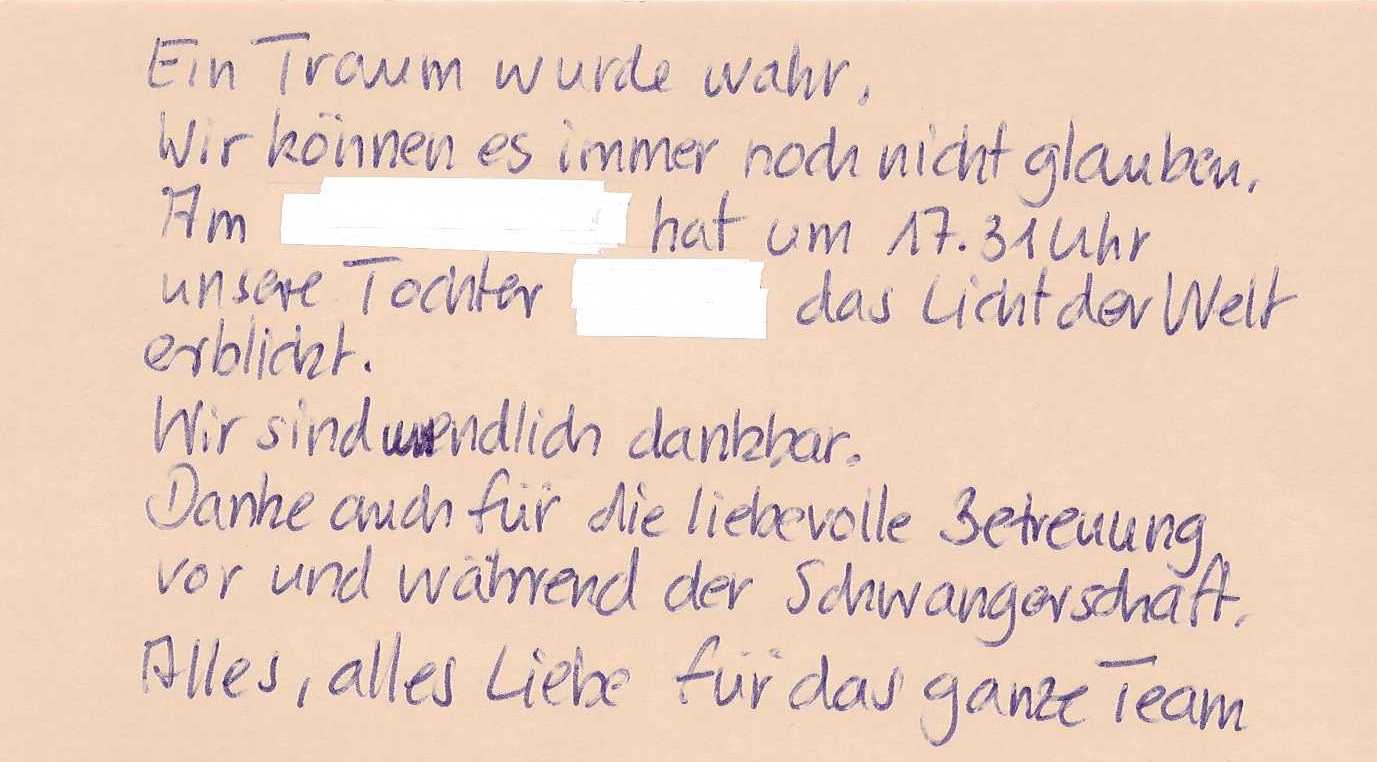 Ein Traum wurde wahr.
Wir können es immer noch nicht glauben.
Am hat um 17.31 Uhr
unsere Tochter das Licht der Welt
erblickt.
Wir sind unendlich dankbar.
Danke auch für die liebevolle Betreuung
vor und während der Schwangerschaft.
Alles, alles Liebe für das ganze Team